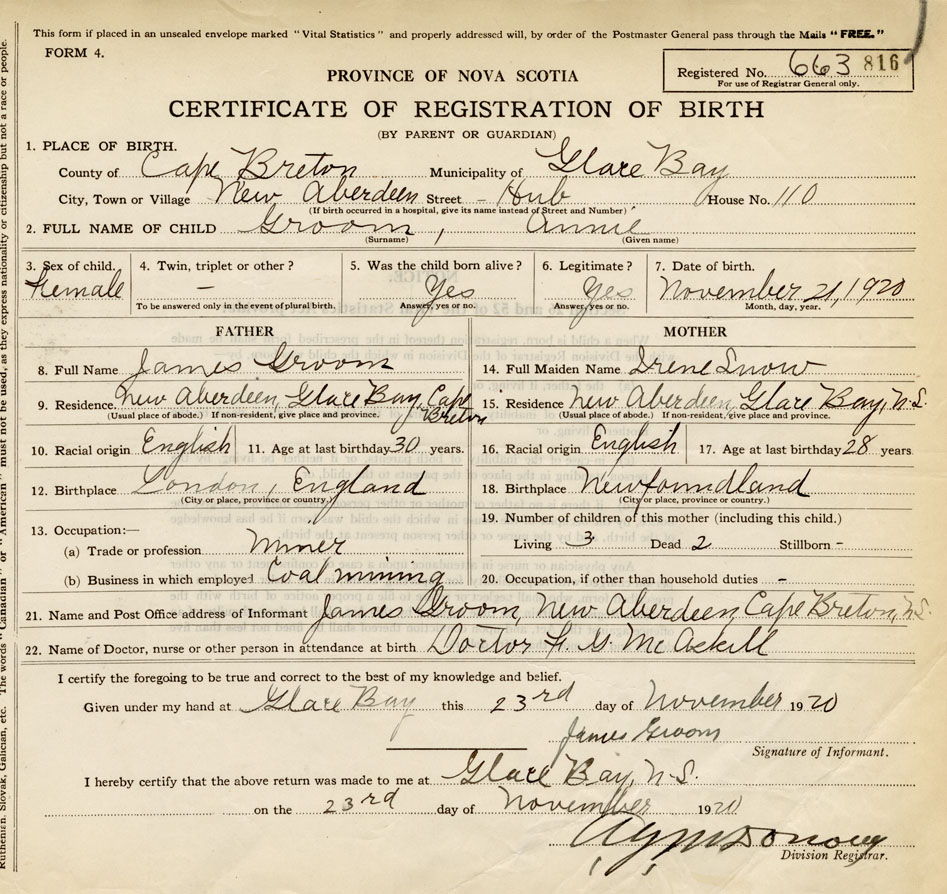 This form if placed in an unsealed envelope marked "Vital Statistics" and properly addressed will, by order of the Postmaster General pass through the Mails "FREE."
FORM 4.
Registered No. 663 816
For use of Registrar General only.
PROVINCE OF NOVA SCOTIA
CERTIFICATE OF REGISTRATION OF BIRTH
(BY PARENT OR GUARDIAN)
1. PLACE OF BIRTH.
County of Cape Breton Municipality of Glace Bay
City, Town or Village New Aberdeen Street - Hub House No. 110
(If birth occurred in a hospital, give its name instead of Street and Number)
2. FULL NAME OF CHILD Groom, Annie
(Surname) (Given name)
3. Sex of child. 4. Twin, triplet or other? 5. Was the child born alive? 6. Legitimate? 7. Date of birth.
Female - Yes Yes November 21, 1920
To be answered only in the event of plural birth. Answer, yes or no. Answer, yes or no. Month, day, year.
FATHER
8. Full Name James Groom
9. Residence New Aberdeen, Glace Bay, Cape Breton
(Usual place of abode.) If non-resident, give place and province.
10. Racial origin English 11. Age at last birthday 30 years.
12. Birthplace London, England
(City or place, province or country.)
13. Occupation:—
(a) Trade or profession Miner
(b) Business in which employed Coal mining
MOTHER
14. Full Maiden Name Irene Snow
15. Residence New Aberdeen, Glace Bay, N.S.
(Usual place of abode.) If non-resident, give place and province.
16. Racial origin English 17. Age at last birthday 28 years
18. Birthplace Newfoundland
(City or place, province or country.)
19. Number of children of this mother (including this child.)
Living 3 Dead 2 Stillborn -
20. Occupation, if other than household duties -
21. Name and Post Office address of Informant James Groom, New Aberdeen, Cape Breton, N.S.
22. Name of Doctor, nurse or other person in attendance at birth Doctor McAskill
I certify the foregoing to be true and correct to the best of my knowledge and belief.
Given under my hand at Glace Bay this 23rd day of November 1920
James Groom
Signature of Informant.
I hereby certify that the above return was made to me at Glace Bay, N.S.
on the 23rd day of November 1920
Division Registrar.
Ruthenian, Slovak, Galician, etc. The words "Canadian" or "American" must not be used, as they express nationality or citizenship but not a race or people.